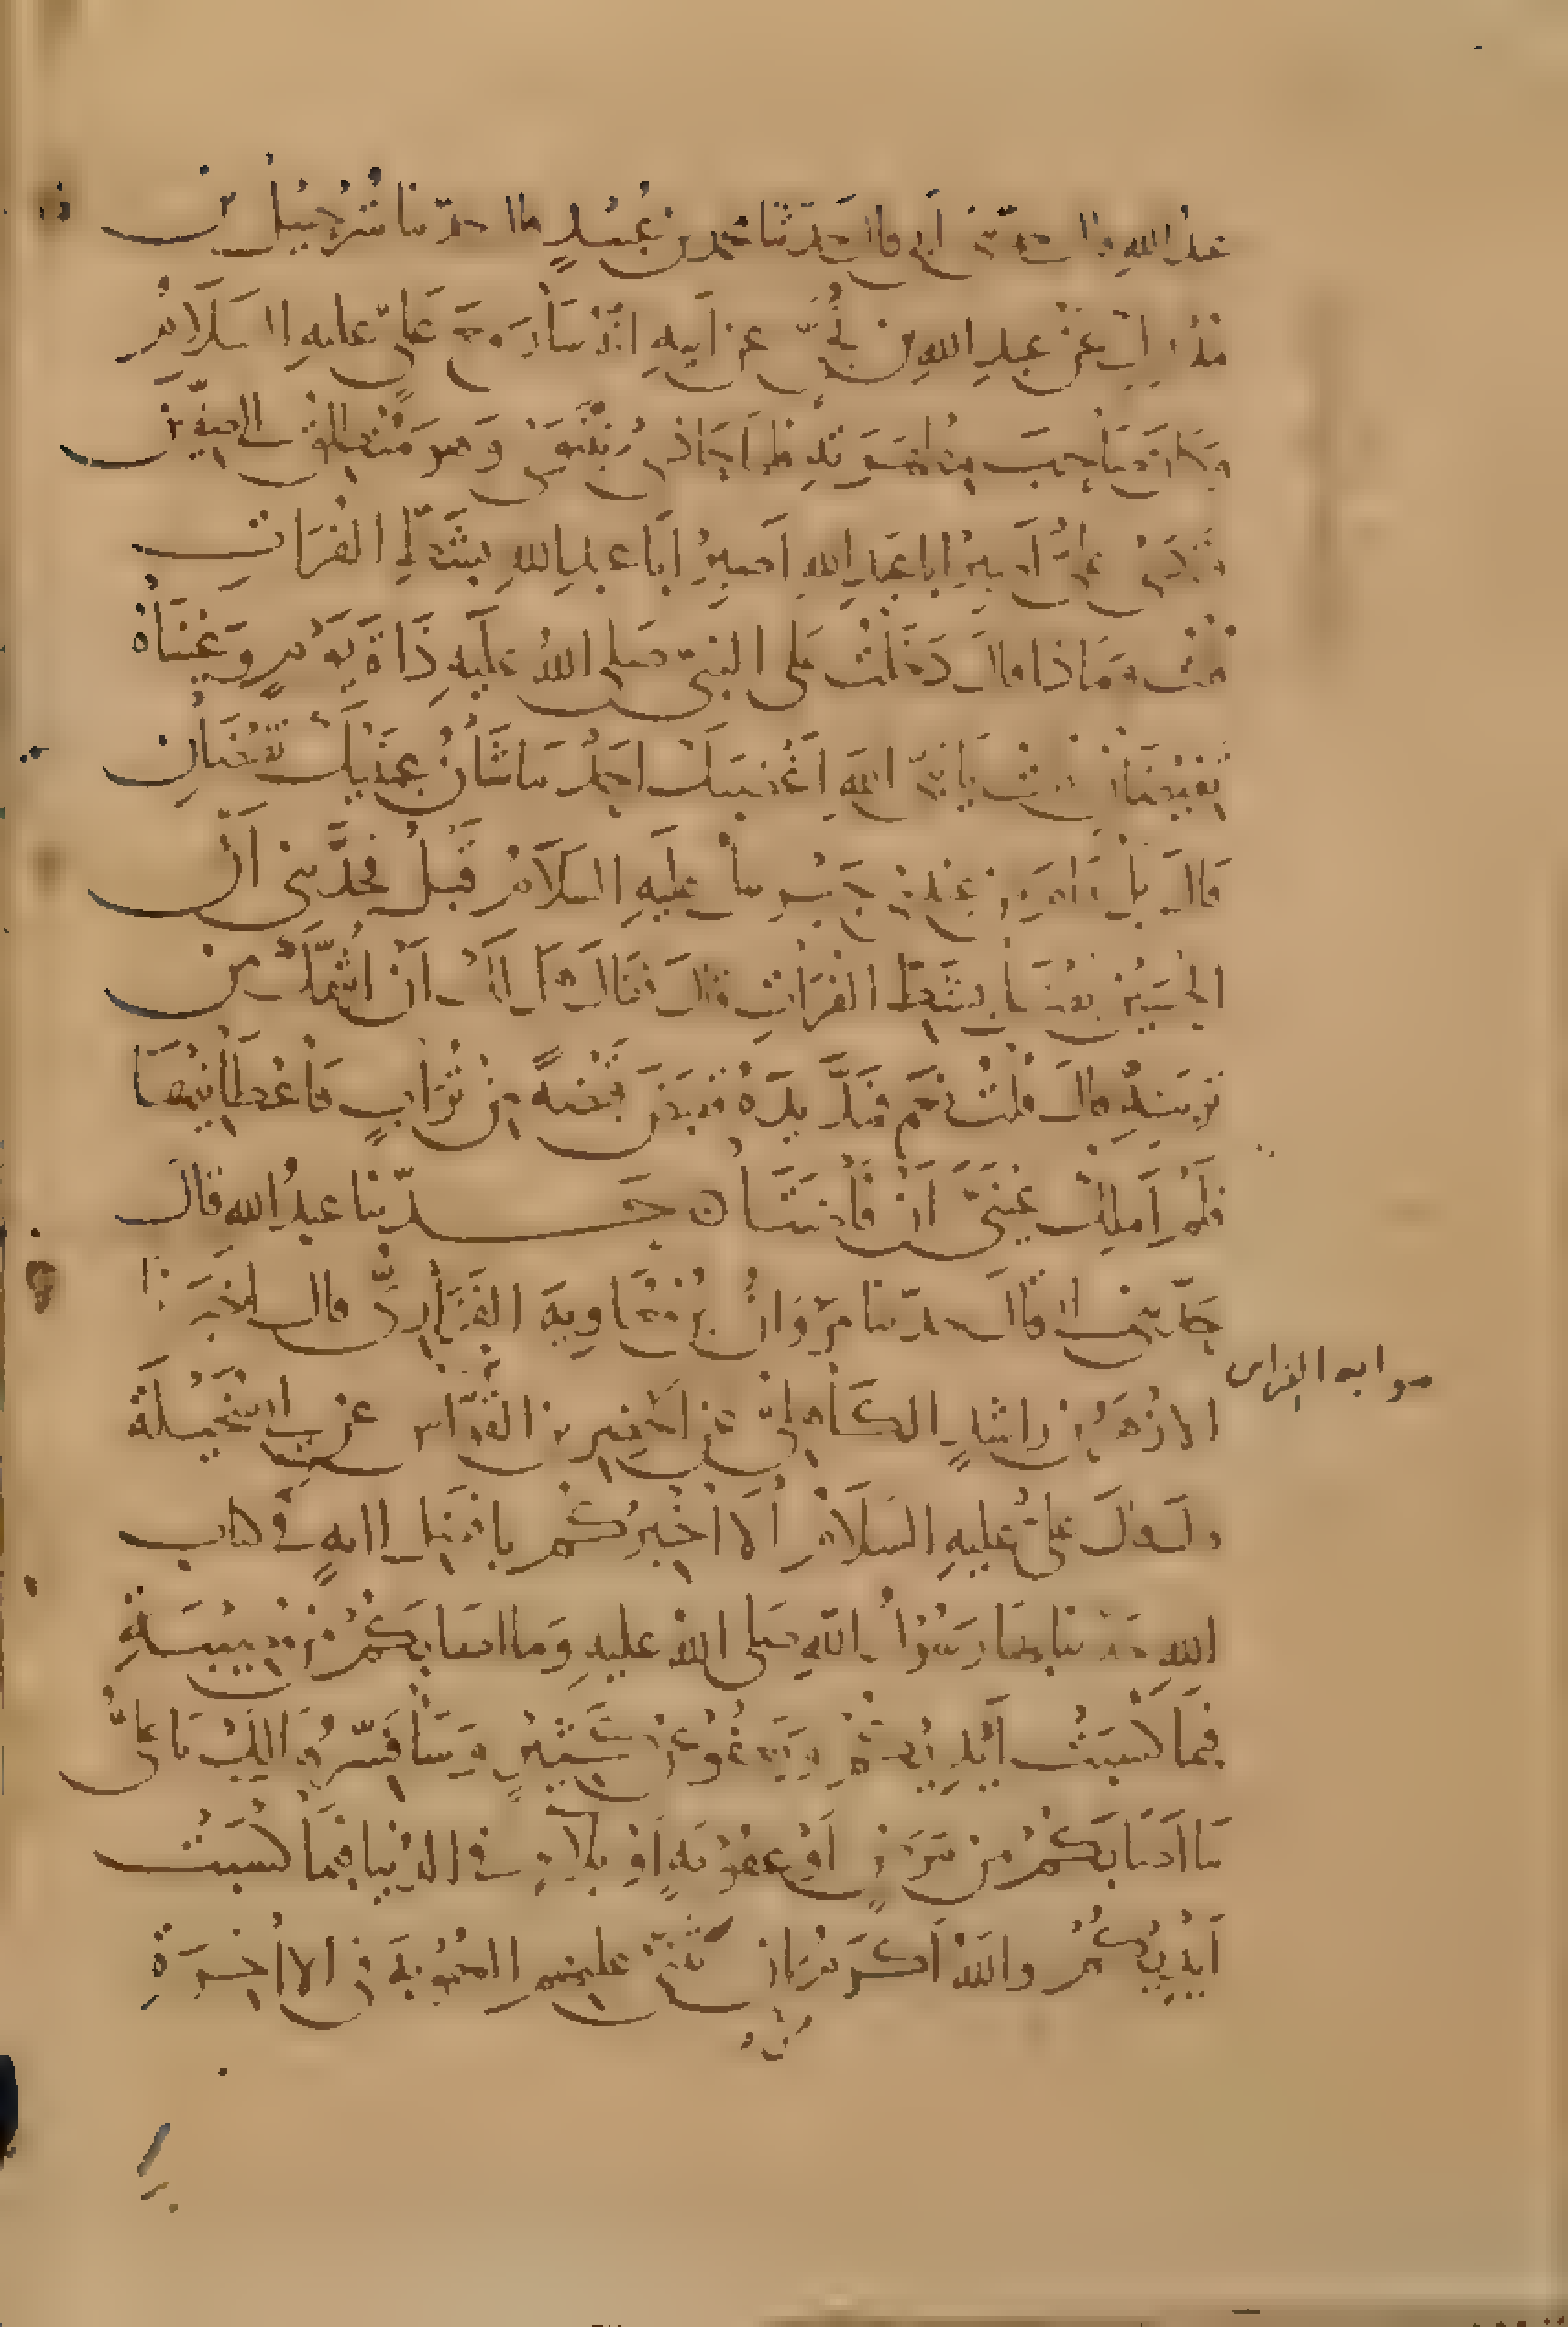 عبدُ اللهِ قال حدّثني أبي قال حَدّثنا محمد بن عُبَيْدٍ قال حدّثنا شُرَحْبِيلُ بن
مُدْرِكٍ عَنْ عبدِ اللهِ بن نُجَيٍّ عن أبيهِ أنّهُ سَارَ مَعَ عَليّ عليهِ السَلَامُ
وَكَانَ صَاحِبَ مِطْهَرَتِهِ فلمّا حَاذى نِيْنَوَى وَهو مُنْطلِقٌ إلى صِفِّيْنَ
فَنَادَى عليٌّ اصبِرْ ابا عَبدِ اللهِ اصبِرْ أبَا عبدِ اللهِ بِشَطِّ الفُرَاتِ
قلتُ وَمَاذا قالَ دَخَلْتُ عَلى النبيّ صلى اللهُ عليهِ ذَاتَ يَوْمٍ وَعَيْنَاهُ
تَفِيْضَانِ قلتُ يا نبيَّ اللهِ أغْضَبَكَ احَدٌ مَا شَأنُ عَيْنَيْكَ تَفِيْضَانِ
قَالَ بَلْ قَامَ مِن عِنْدِي جِبْريلُ عليهِ السَلَامُ قَبْلُ فحَدَّثنِي أنّ
الحُسَيْنَ يُقْتَلُ بِشَطِّ الفُرَاتِ قالَ فقالَ هَل لكَ أنْ اُشِمَّكَ من
تُرْبَتِهِ قالَ قُلْتُ نَعَم فَمَدَّ يَدَهُ فَقَبَضَ قَبْضَةً مِنْ تُرَابٍ فَأعْطَانِيْهَا
فَلَمْ أَملِكْ عَيْنَيَّ أَنْ فَاضَتَا ن حَدّثنا عبدُ الله قالَ
حَدّثني أبي قالَ حدّثنا مَرْوَانُ بْنُ مُعَاوِيةَ الفَزَارِيُّ قال أخبَرَنا
الازْهَرُ بْنُ رَاشِدٍ الكَاهِلِيُّ عنِ الخَضِرِ بن القَوّاس عن أبي سُخَيْلَةَ
صوابه القواس
قالَ قالَ عَليٌّ عليهِ السَلَامُ ألَا أُخْبِرُكُم بِأفضَلِ آيةٍ في كتاب
اللهِ حَدّثنا بها رَسُوْلُ اللّهِ صَلى اللهُ عليهِ وَما أصَابَكُمْ مِنْ مُصِيبَةٍ
فبِمَا كَسَبَتْ أَيْدِيْكُمْ وَيَعْفُو عَنْ كَثِيْرٍ وَسَأُفَسِّرُهَا لكَ يَا عَليُّ
مَا أصَابَكُمْ مِن مَرَضٍ أوْ عقُوْبَةٍ أوْ بَلَاءٍ في الدُنْيا فبِمَا كَسَبَتْ
أَيْدِيْكُمْ واللهُ أكرَمُ مِن أنْ يُثَنِّيَ عليهِم العُقُوْبَةَ في الاخِرَةِ